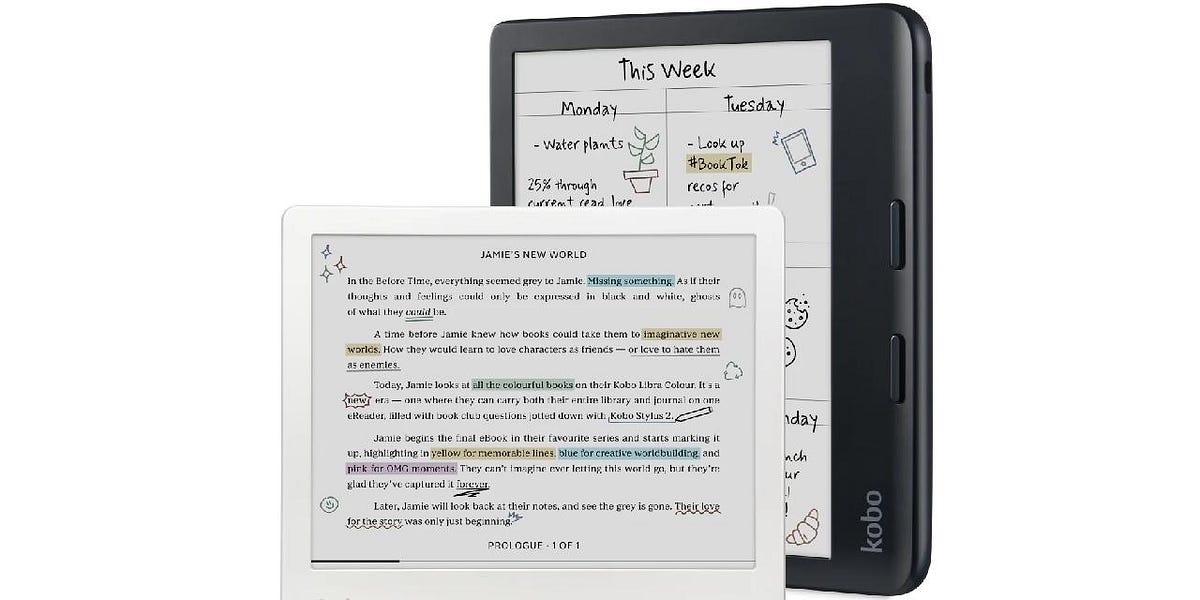 This Week
Monday
Tuesday
- Water plants
- Look up
#BookTok
recos for
25% through
current read, love
JAMIE'S NEW WORLD
In the Before Time, everything seemed grey to Jamie. Missing something. As if their
thoughts and feelings could only be expressed in black and white, ghosts
of what they could be.
A time before Jamie knew how books could take them to imaginative new
worlds. How they would learn to love characters as friends — or love to hate them
as enemies.
Today, Jamie looks at all the colourful books on their Kobo Libra Colour. It's a
new era — one where they can carry both their entire library and journal on one
eReader, filled with book club questions jotted down with Kobo Stylus 2.
Jamie begins the final eBook in their favourite series and starts marking it
up, highlighting in yellow for memorable lines, blue for creative worldbuilding, and
pink for OMG moments. They can't imagine ever letting this world go, but they're
glad they've captured it forever.
Later, Jamie will look back at their notes, and see the grey is gone. Their love
for the story was only just beginning.
PROLOGUE - 1 OF 1
kobo